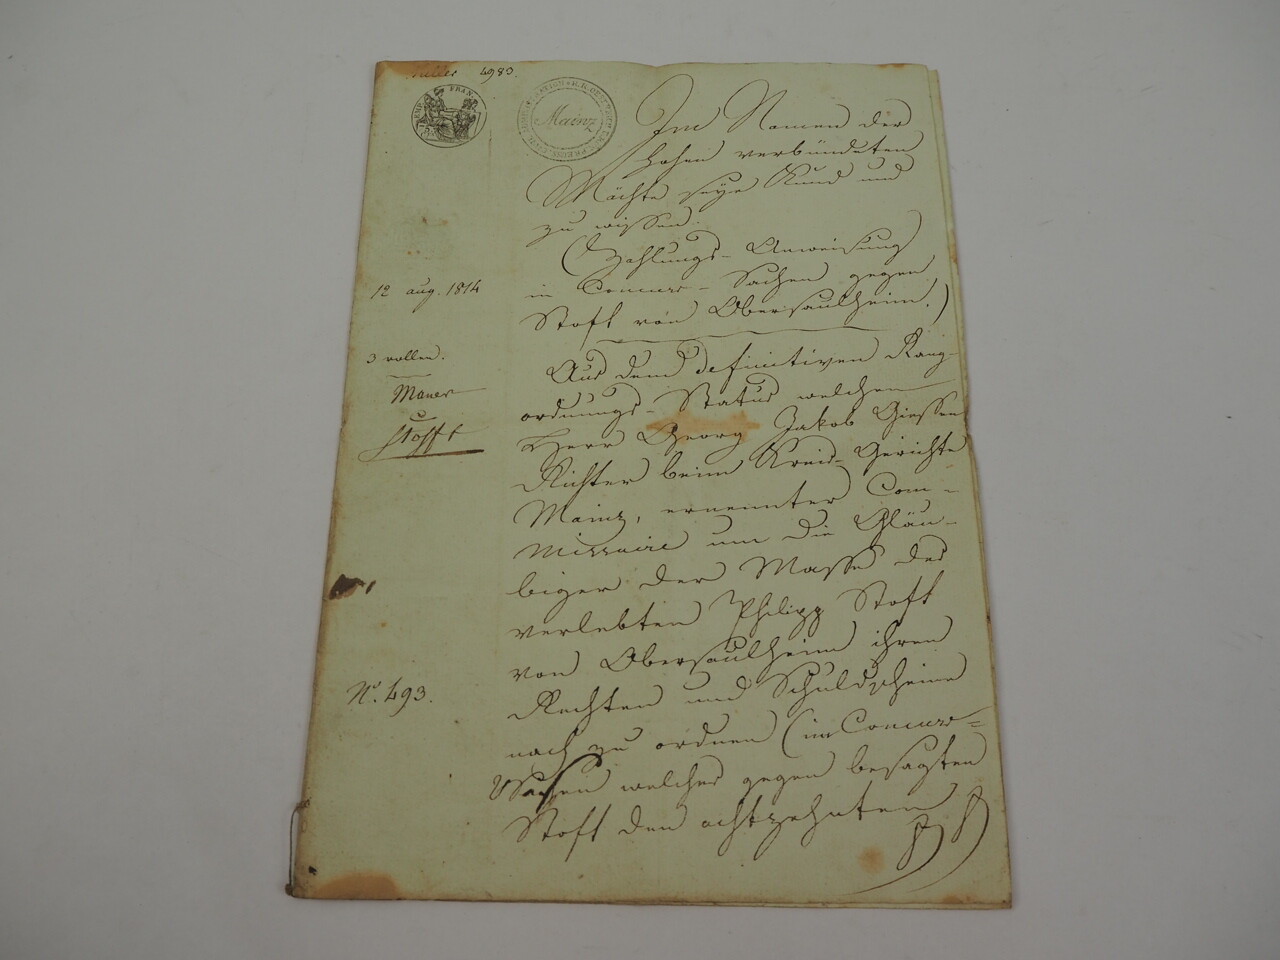 4983.
Mainz
Im Namen der
hohen verbündeten
Mächte seye Kund und
zu wissen.
(Zahlungs-Anweisung
in Concurs-Sachen gegen
Stoft von Obersaulheim.)
12 aug. 1814
3 rollen.
Aus dem definitiven Rang-
ordnungs-Status welchen
Herr Georg Jakob Giessen
Richter beim Kreis-Gerichte
Mainz, ernennter Com-
missaire um die Gläu-
biger der Masse des
verlebten Philipp Stoft
von Obersaulheim ihren
Rechten und Schuldscheine
nach zu ordnen (im Concurs-
Sachen welches gegen besagten
Stoft den achtzehnten
Stofft
N°. 493.